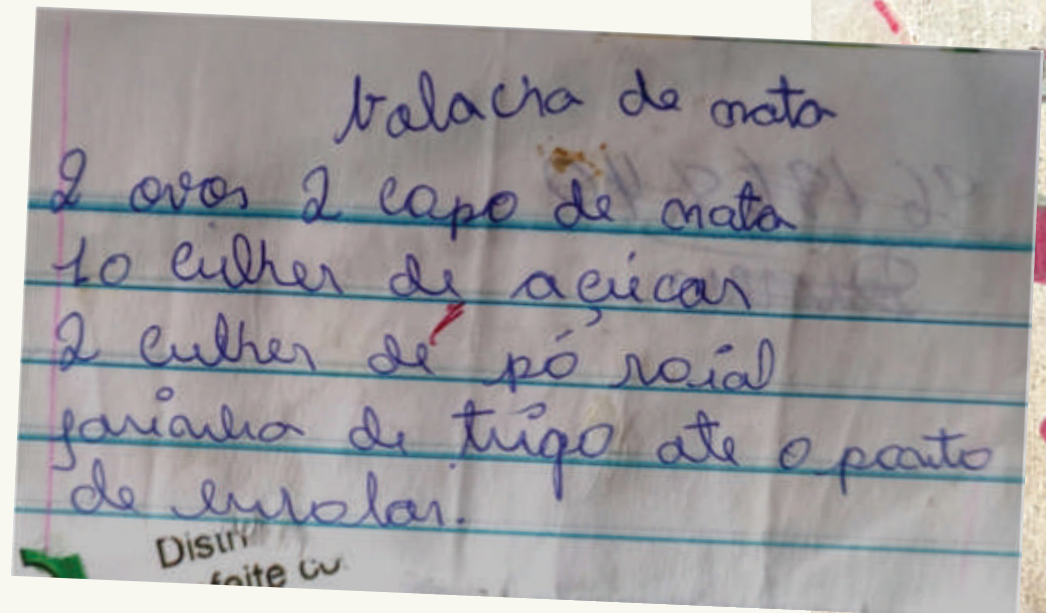 balacha de nata
2 ovos 2 capo de nata
10 culher de açúcar
2 culher de pó roial
farinha de trigo ate o ponto
de enrolar.